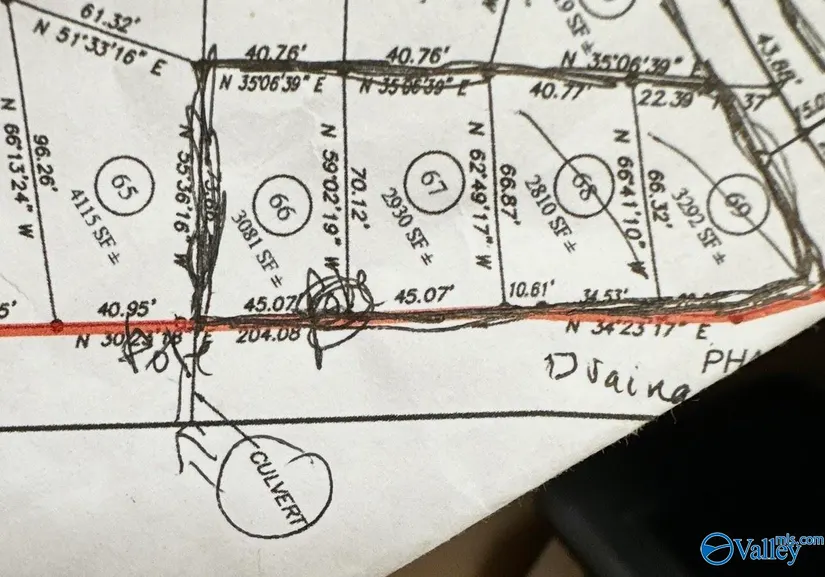 61.32'
N 51°33'16" E
40.76'
40.76'
N 35°06'39" E
N 35°06'39" E
N 35°06'39" E
40.77'
22.39'
37
43.88'
N 66°13'24" W
96.26'
65
4115 SF ±
66
3081 SF ±
N 59°02'19" W
70.12'
67
2930 SF ±
N 62°49'17" W
66.87'
68
2810 SF ±
N 66°41'10" W
66.32'
69
3292 SF ±
40.95'
45.07'
45.07'
10.61'
34.53'
204.08'
N 34°23'17" E
Draina
CULVERT
Valleymls.com